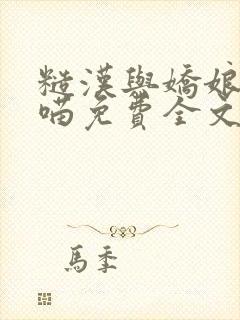 糙漢與嬌娘
喵免費全文
馬季